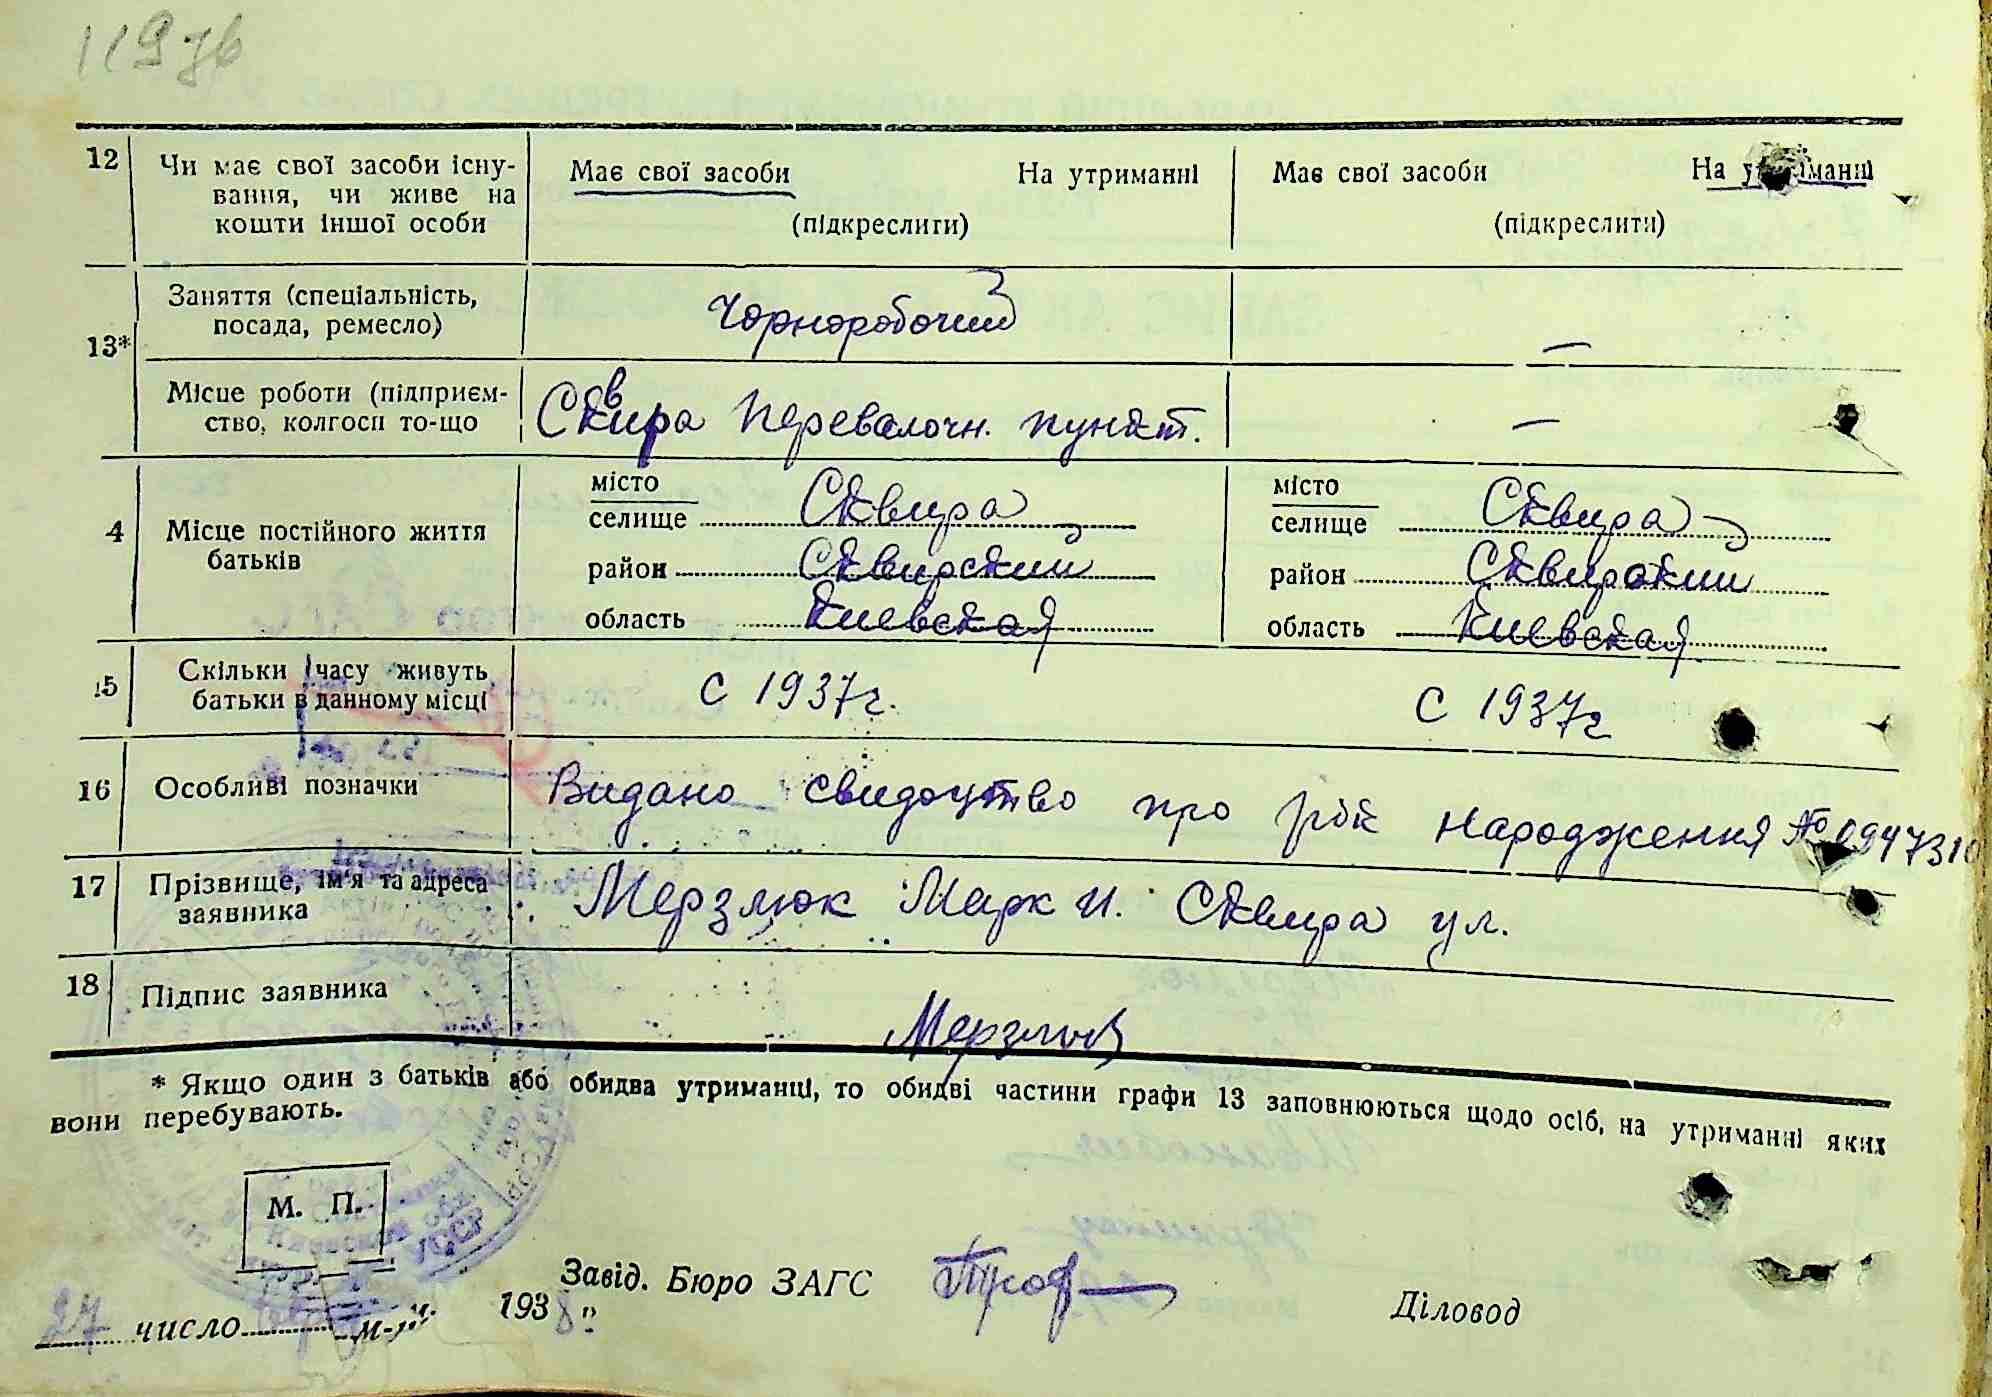 12 Чи має свої засоби існу-
вання, чи живе на
кошти іншої особи
Має свої засоби На утриманні
(підкреслити)
Має свої засоби На утриманні
(підкреслити)
13*
Заняття (спеціальність,
посада, ремесло)
Чорноробочий
—
Місце роботи (підприєм-
ство, колгосп то-що
Сквира Перевалочн. пункт.
—
4 Місце постійного життя
батьків
місто
селище Сквира
район Сквирский
область Киевская
місто
селище Сквира
район Сквирский
область Киевская
15 Скільки часу живуть
батьки в данному місці
С 1937 г.
С 1937 г
16 Особливі позначки
Видано свидоцтво про рік народження № 0947310
17 Прізвище, ім'я та адреса
заявника
Мерзлюк Марк И. Сквира ул.
18 Підпис заявника
Мерзлюк
* Якщо один з батьків або обидва утриманці, то обидві частини графи 13 заповнюються щодо осіб, на утриманні яких
вони перебувають.
М. П.
27 число м-ця 1938
Завід. Бюро ЗАГС
Діловод